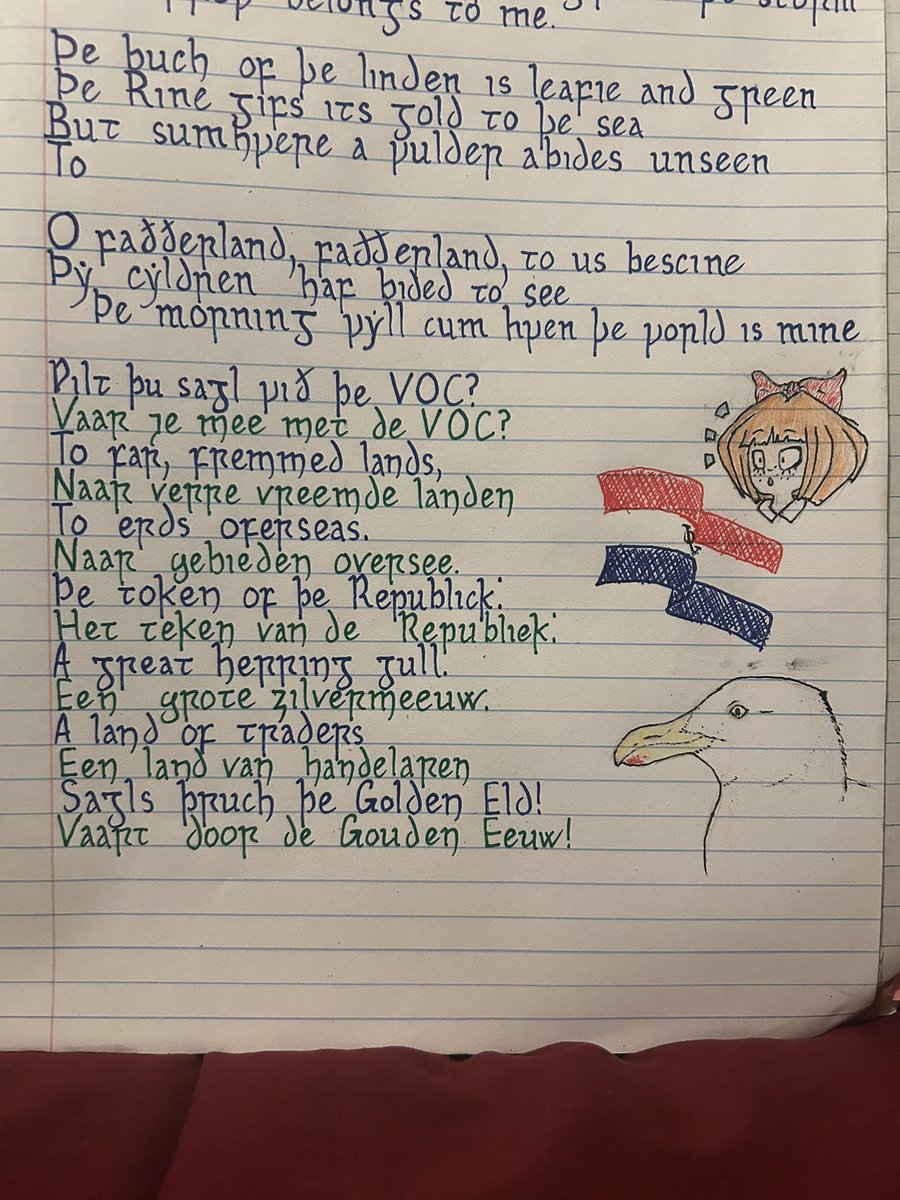 belongs to me.
Þe buch of þe linden is leafie and green
Þe Rine gifs its gold to þe sea
But sumhƿere a ƿulder abides unseen
To
O faððerland, faððerland, to us bescine
Þẏ cẏldren haf bided to see
Þe morning ƿẏll cum hƿen þe ƿorld is mine
Ƿilt þu sagl ƿið þe VOC?
Vaar je mee met de VOC?
To far, fremmed lands,
Naar verre vreemde landen
To erds oferseas.
Naar gebieden oversee.
Þe token of þe Republick:
Het teken van de Republiek:
A great herring gull.
Een grote zilvermeeuw.
A land of traders
Een land van handelaren
Sagls þruch þe Golden Eld!
Vaart door de Gouden Eeuw!